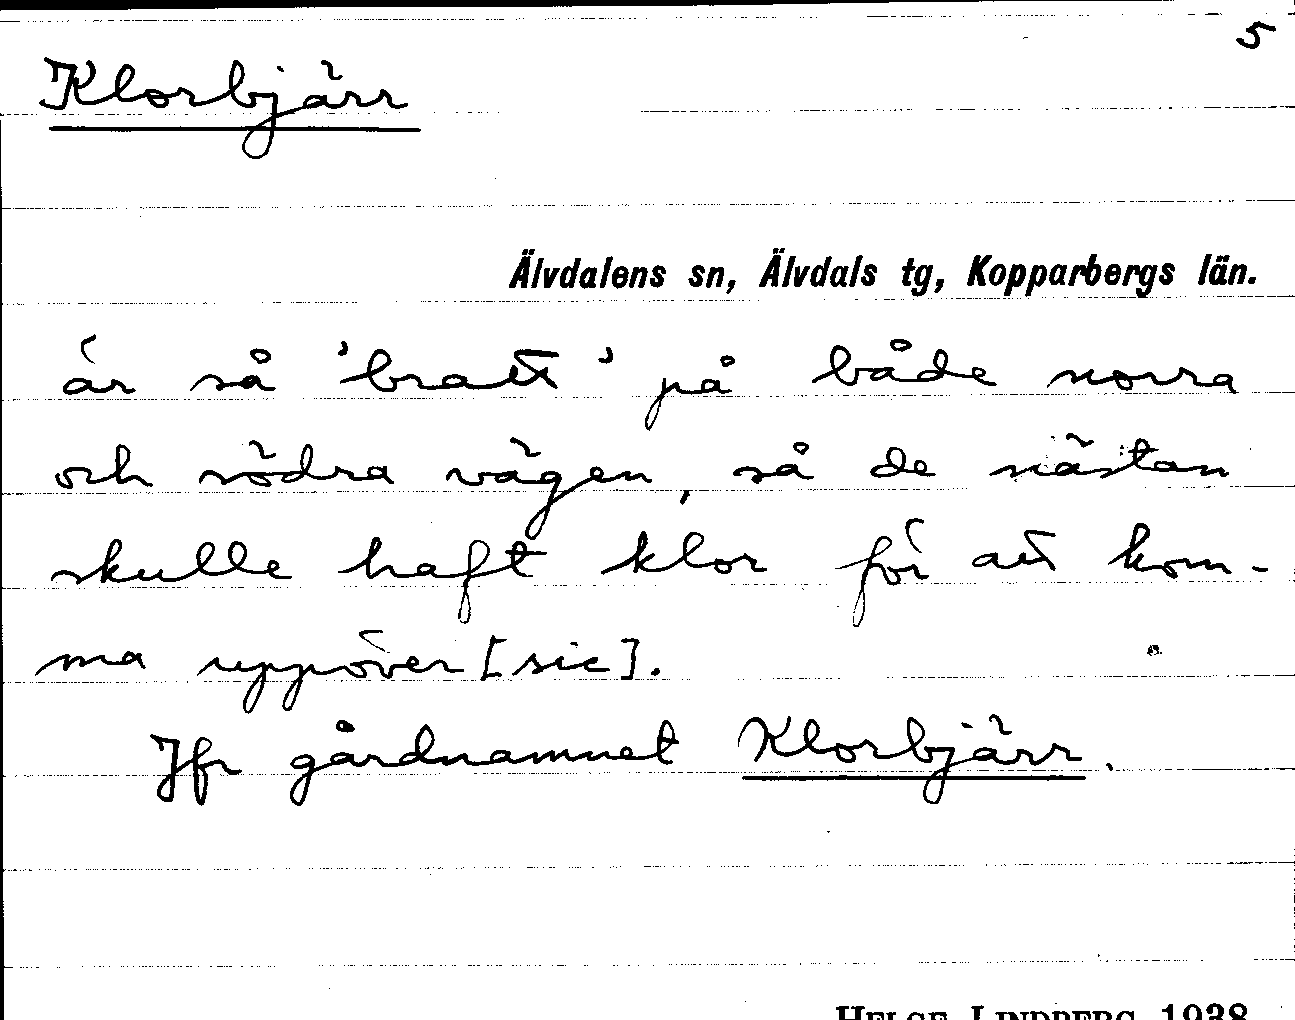 5
Klorbjärr
Älvdalens sn, Älvdals tg, Kopparbergs län.
är så 'bratt' på både norra
och södra vägen, så de nästan
skulle haft klor för att kom-
ma uppöver [sic].
Jfr gårdnamnet Klorbjärr.
HELGE LINDBERG 1938